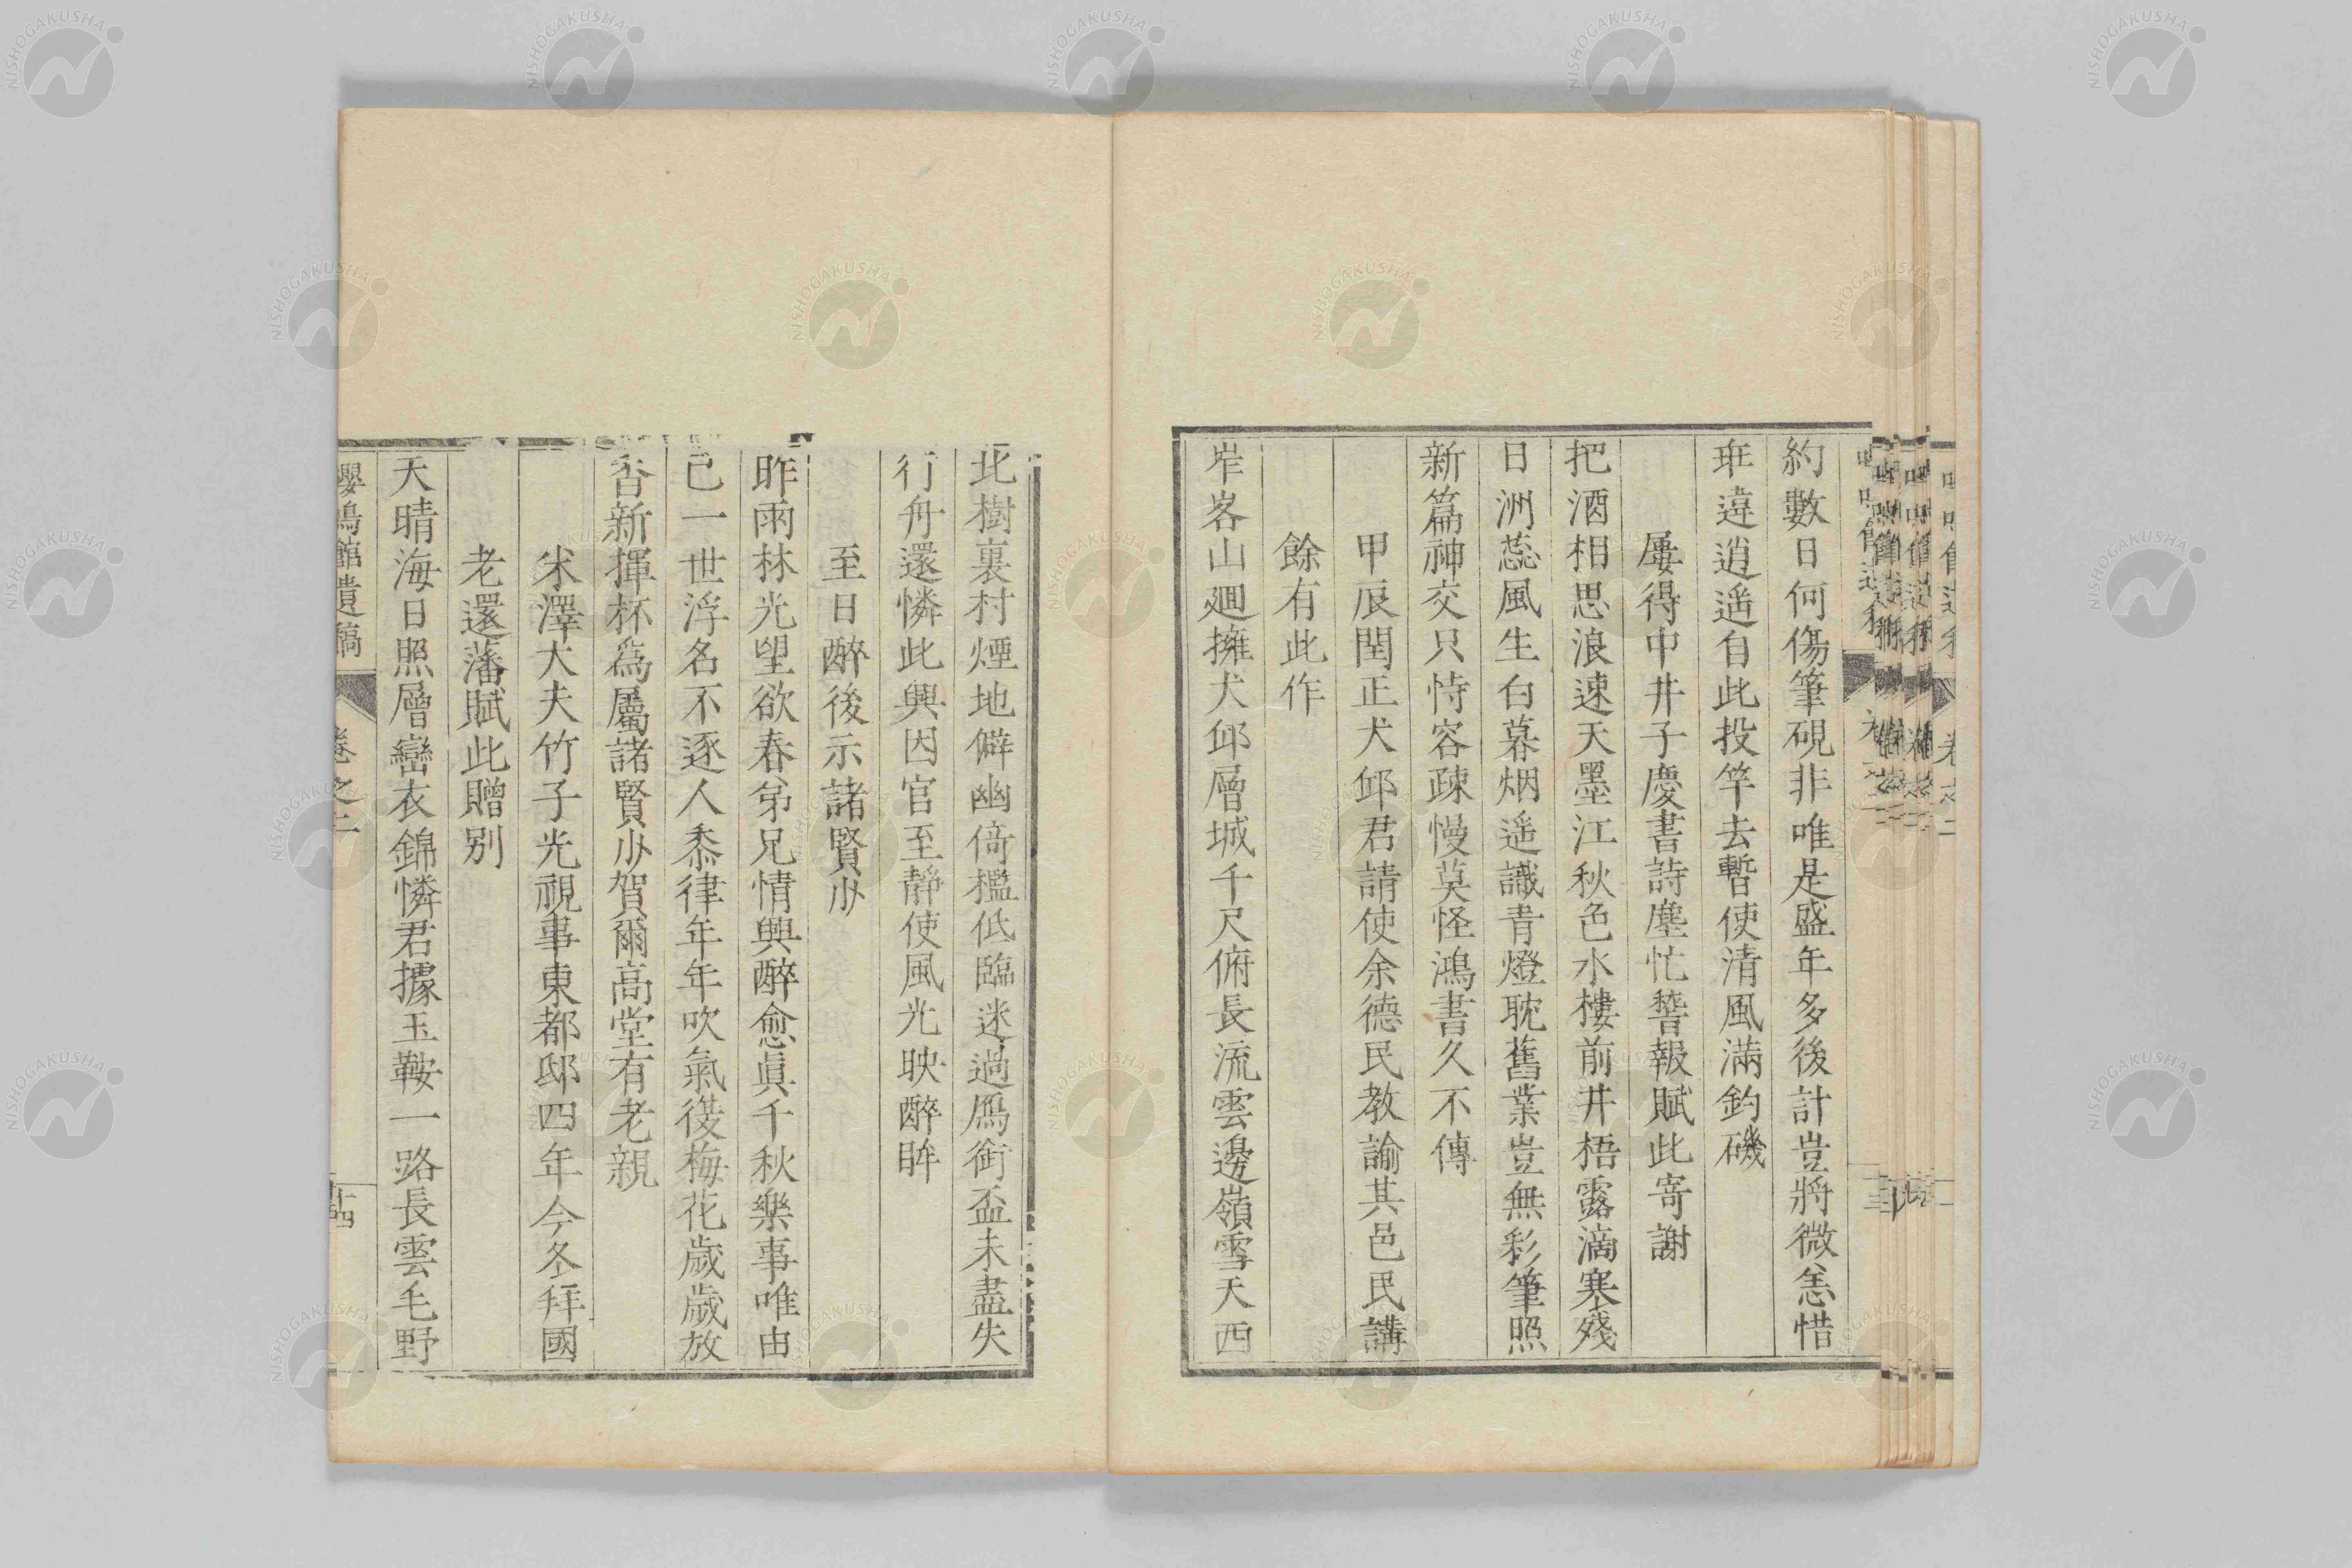 約數日何傷筆硯非唯是盛年多後計豈將微恙惜
班違逍遙自此投竿去暫使清風滿釣磯
屢得中井子慶書詩塵忙誓報賦此寄謝
把酒相思浪速天墨江秋色水樓前井梧露滴寒殘
日洲蕊風生白暮烟遙識青燈耽舊業豈無彩筆照
新篇神交只恃容疎慢莫怪鴻書久不傳
甲辰閏正犬邱君請使余德民教諭其邑民講
餘有此作
岝峉山廻擁犬邱層城千尺俯長流雲邊嶺雪天西
北樹裏村煙地僻幽倚檻低臨迷過鴈銜盃未盡失
行舟還憐此興因官至靜使風光映醉眸
至日醉後示諸賢少
昨雨林光望欲春弟兄情興醉愈眞千秋樂事唯由
己一世浮名不逐人黍律年年吹氣後梅花歲歲放
香新揮杯爲屬諸賢少賀爾高堂有老親
米澤大夫竹子光視事東都邸四年今冬拜國
老還藩賦此贈別
天晴海日照層巒衣錦憐君據玉鞍一路長雲毛野
嚶鳴館遺稿 卷之二 十四
NISHOGAKUSHA